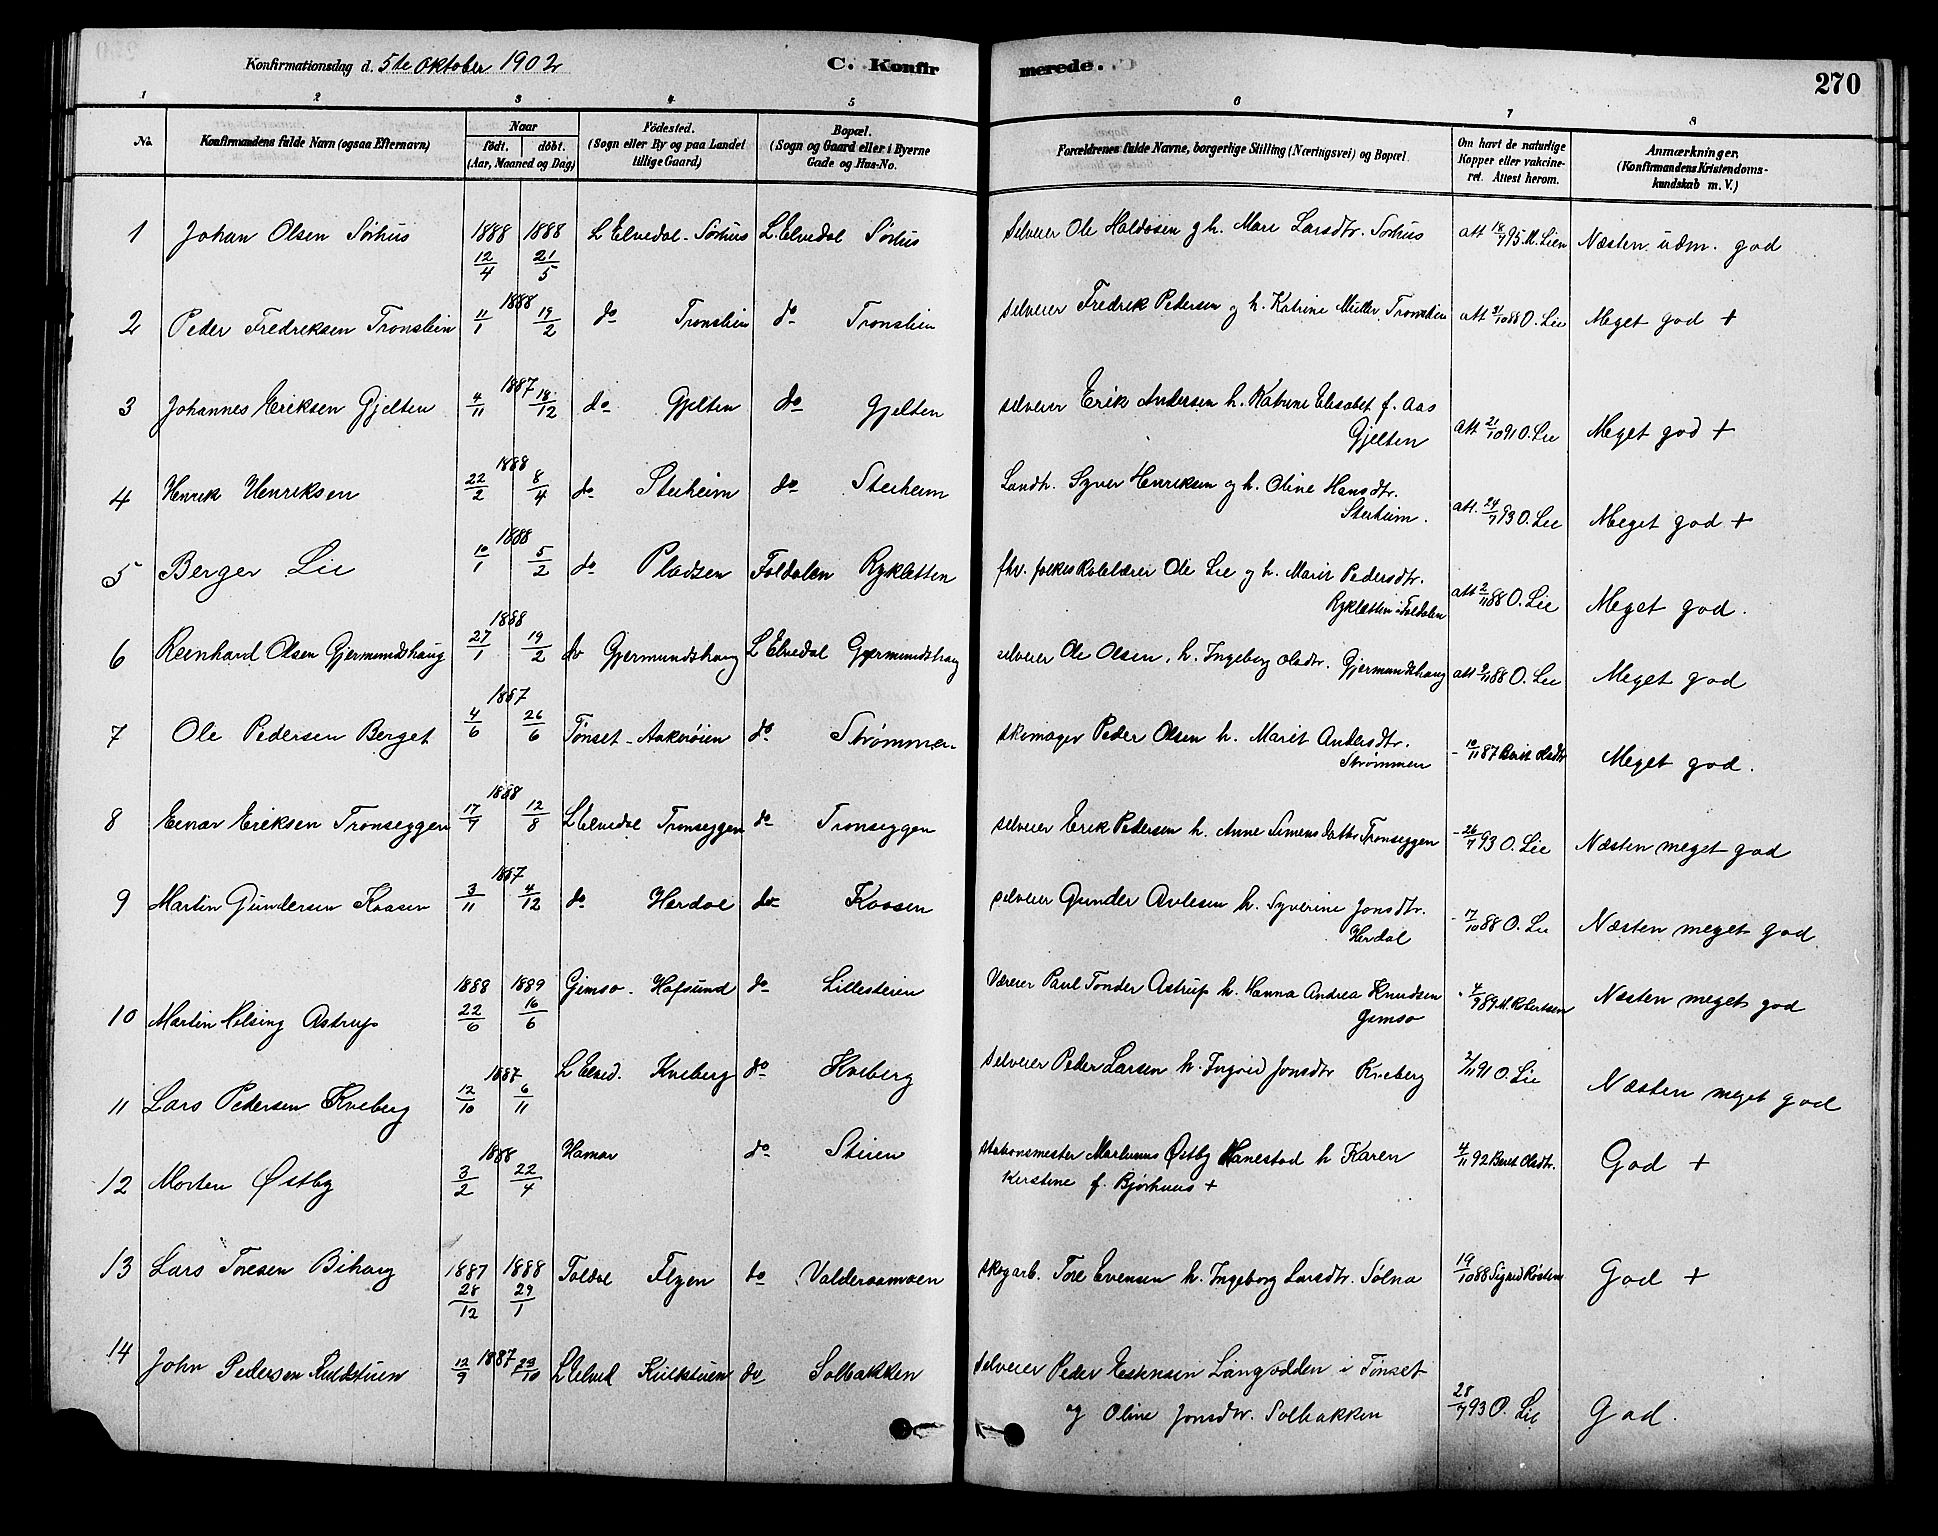 Konfirmationsdag d. 5te oktober 1902
C. Konfir
merede.
270
1 2 3 4 5 6 7 8
No. Konfirmandens fulde Navn (ogsaa Efternavn) Naar født. døbt. (Aar, Maaned og Dag) Fødested. (Sogn eller By og paa Landet tillige Gaard) Bopæl. (Sogn og Gaard eller i Byerne Gade og Hus-No. Forældrenes fulde Navne, borgerlige Stilling (Næringsvei) og Bopæl. Om havt de naturlige Kopper eller vakcineret. Attest herom. Anmærkninger. (Konfirmandens Kristendomskundskab m. V.)
1 Johan Olsen Sørhus 1888 12/4 1888 21/5 L Elvedal - Sørhus L. Elvedal Sørhus Selveier Ole Haldosen g h. Mari Larsdtr. Sørhus att 18/7 95 M. Lien Næsten udm. god
2 Peder Fredriksen Tronslien 1888 11/1 19/2 do Tronslien do Tronslien selveier Fredrik Pedersen og h. Katrine Müller Tronslien att 31/10 88 O. Lie Meget god +
3 Johannes Eriksen Gjelten 1887 4/11 18/12 do Gjelten do Gjelten selveier Erik Andersen h. Katrine Elisabet f. Aas Gjelten att 21/10 91 O. Lie Meget god +
4 Henrik Henriksen 1888 22/2 8/4 do Steiheim do Steiheim Landh. Syver Henriksen og h. Oline Hansdtr. Steiheim. att. 24/7 93 O. Lie Meget god +
5 Berger Lie 1888 10/1 5/2 do Pladsen Foldalen Rykletten fhv. folkeskolelærer Ole Lie og h. Marit Pedersdtr. Rykletten i Foldalen att 2/11 88 O. Lie Meget god.
6 Reinhard Olsen Gjermundshaug 1888 27/1 19/2 do Gjermundshaug L Elvedal Gjermundshaug selveier Ole Olsen, h. Ingeborg Olsdtr. Gjermundshaug att 2/11 88 O. Lie Meget god
7 Ole Pedersen Berget 1887 4/6 26/6 Tønset - Aakrøien do Strømmen skomager Peder Olsen h. Marit Andersdtr. Strømmen - 10/11 87 Berit Olsdtr Meget god.
8 Einar Eriksen Tronseggen 1888 17/7 12/8 L Elvedal Tronseggen do Tronseggen selveier Erik Pedersen h. Anne Simensdatter Tronseggen - 26/7 93 O. Lie Næsten meget god
9 Martin Gundersen Kaasen 1887 3/11 4/12 do Herdal do Kaasen selveier Gunder Avlesen h. Syverine Jonsdtr. Herdal - 7/10 88 O. Lie Næsten meget god.
10 Martin Helsing Astrup 1888 22/6 1889 16/6 Gimsø - Hafsund do Lillesteien Væreier Paul Tønder Astrup h. Hanna Andrea Knudsen Gimsø - 4/9 89 M. Robertsen Næsten meget god
11 Lars Pedersen Kveberg 1887 12/10 6/11 L Elved. Kveberg do Kveberg selveier Peder Larsen h. Ingrid Jonsdtr Kveberg 2/11 91 O. Lie Næsten meget god
12 Morten Østby 1888 3/2 22/4 Hamar do Steien stationsmester Martinus Østby Hanestad h Karen Kirstine f. Bjørhuus + 4/11 92 Berit Olsdtr. God +
13 Lars Toresen Bihaug 1887 28/12 1888 29/1 Foldal Flyen do Valderaamoen skogarb. Tore Evensen h. Ingeborg Larsdtr. Sølna 19/10 88 Sigrid Rosten God +
14 John Pedersen Kulkstuen 1887 12/9 23/10 L Elved Kulkstuen do Solbakken selveier Peder Estensen Langodden i Tønset og Oline Jonsdtr. Solbakken 28/7 93 O. Lie God.